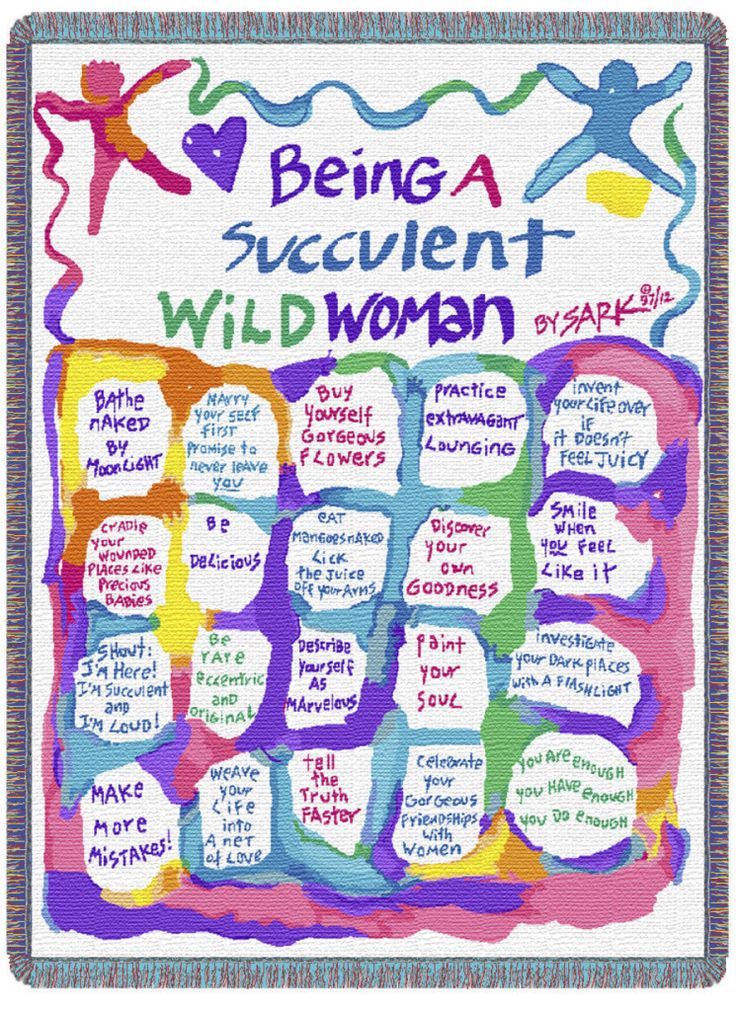 BeinG A
Succulent
WiLD WOMAN
BY SARK © 97/12
BAthe
nAKED
BY
MoonLiGHT
MARRY
your SELF
FiRST
PRomise to
never leave
you
Buy
Yourself
GORGeous
FLOWERS
PRACTiCE
extRAVAGAnt
LOUNGiNG
invent
youR LiFe over
iF
it Doesn't
FeeL JuiCY
CRADLe
your
WOUNDED
PLACes Like
PRecious
BABies
Be
DeLicious
eAT
MAnGoes nAKeD
Lick
the Juice
OFF your ARMS
Discover
your
own
GOODNESS
SMiLe
WHEN
you FeeL
Like iT
SHout:
I'M Here!
I'M Succulent
and
I'M LOUD!
Be
rAre
eccentric
and
oRiGinAL
DescRibe
YourseLF
AS
MArveLous
pAint
your
SOUL
investiGAte
your DARK plACes
with A FLASHLiGHT
MAKe
MoRe
MiSTAKes!
Weave
your
Life
into
A neT
oF Love
tell
the
TRuth
FASTer
CeleBRAte
your
GorGeous
FRienDSHips
with
Women
you ARe enouGH
you HAve enouGH
you Do enouGH